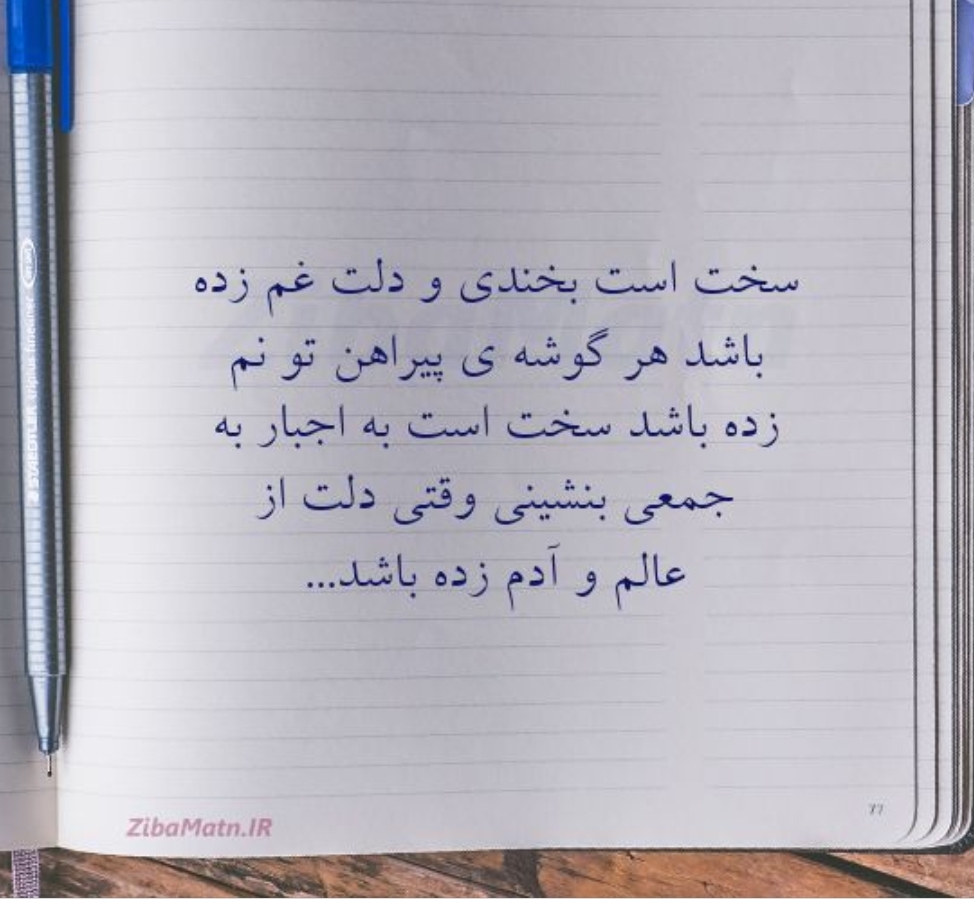 سخت است بخندی و دلت غم زده
باشد هر گوشه ی پیراهن تو نم
زده باشد سخت است به اجبار به
جمعی بنشینی وقتی دلت از
عالم و آدم زده باشد...
ZibaMatn.IR
77